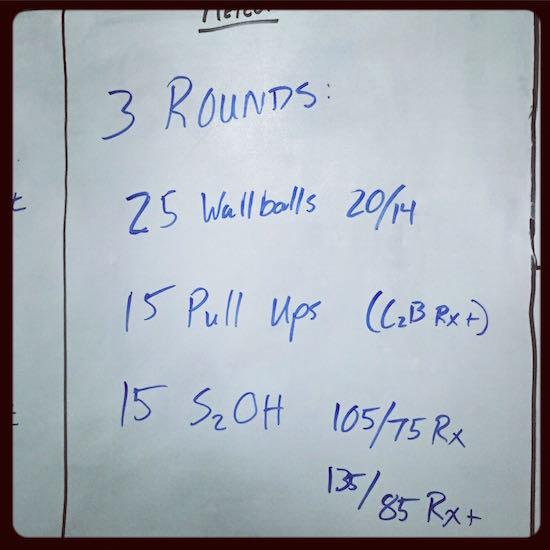 3 ROUNDS:
25 Wallballs 20/14
15 Pull Ups (C2B Rx+)
15 S2OH 105/75 Rx
135/85 Rx+